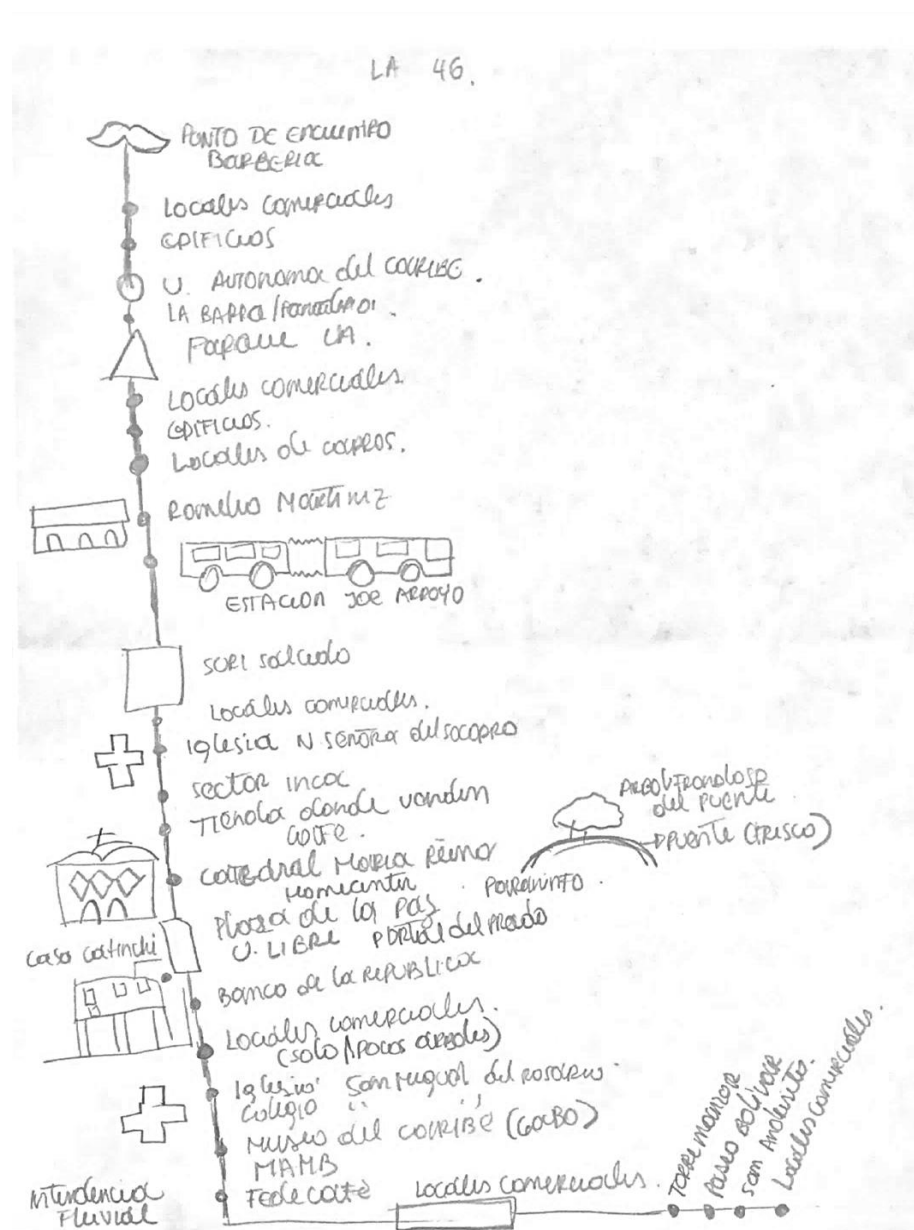 LA 46.
PUNTO DE ENCUENTRO
BARBERIA
LOCALES COMERCIALES
EDIFICIOS
U. AUTONOMA del CARIBE.
LA BARRA /
PARQUE UA.
LOCALES COMERCIALES
EDIFICIOS.
LOCALES de CARROS.
ROMELIO MARTINEZ
ESTACION JOE ARROYO
SURI SALCEDO
LOCALES COMERCIALES.
Iglesia N SEÑORA del SOCORRO
SECTOR INCA
TIENDA donde venden
CAFE.
ARBOL FRONDOSO
del PUENTE
PUENTE (FRESCO)
CATEDRAL MARIA REINA
Homecenter
PARANINFO.
PLAZA de la PAZ
U. LIBRE PORTAL del PRADO
CASA CATINCHI
BANCO de la REPUBLICA
LOCALES COMERCIALES.
(SOLO/POCOS ARBOLES)
Iglesia San Miguel del rosario.
Colegio " "
MUSEO del CARIBE (GABO)
MAMB
Fedecafé
INTENDENCIA
FLUVIAL
LOCALES COMERCIALES.
TORRE MANZUR
PASEO BOLÍVAR
SAN Andresito.
LOCALES COMERCIALES.